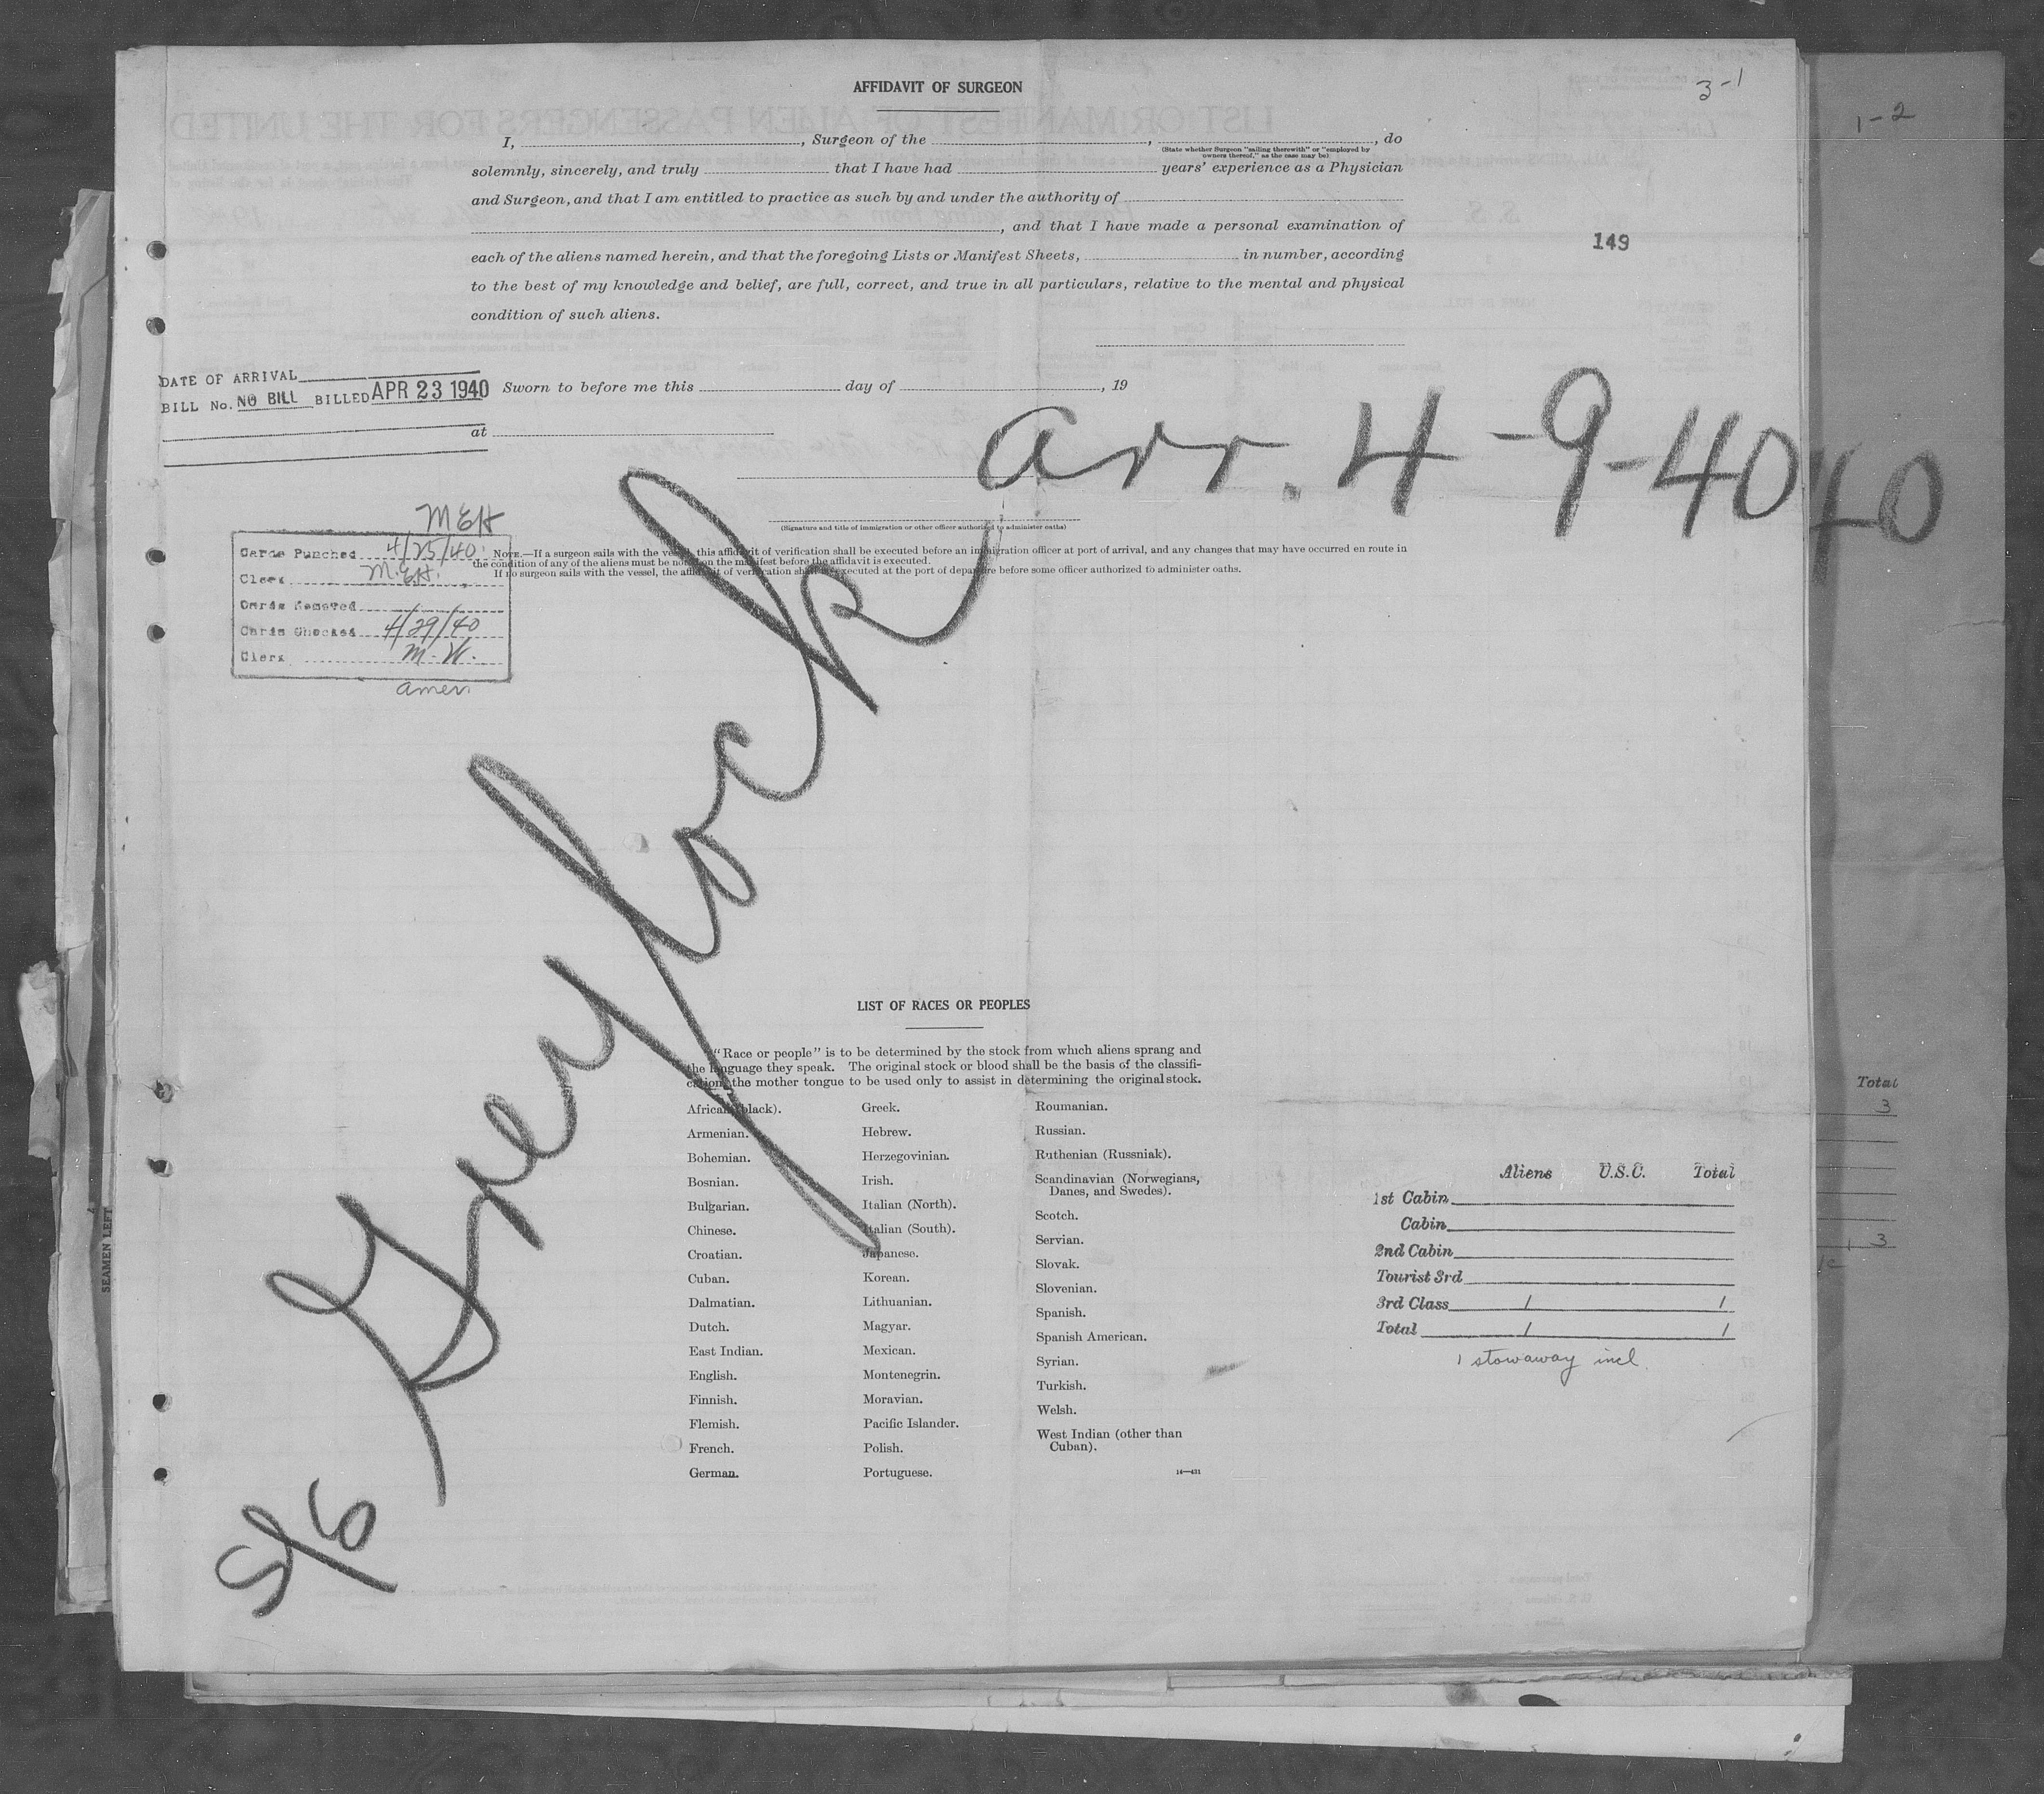 AFFIDAVIT OF SURGEON
3-1
1-2
I, , Surgeon of the , , do
(State whether Surgeon "sailing therewith" or "employed by owners thereof," as the case may be)
solemnly, sincerely, and truly that I have had years' experience as a Physician
and Surgeon, and that I am entitled to practice as such by and under the authority of
, and that I have made a personal examination of
149
each of the aliens named herein, and that the foregoing Lists or Manifest Sheets, in number, according
to the best of my knowledge and belief, are full, correct, and true in all particulars, relative to the mental and physical
condition of such aliens.
DATE OF ARRIVAL
BILL No. NO BILL BILLED APR 23 1940
Sworn to before me this day of , 19
at
arr. 4-9-40
40
(Signature and title of immigration or other officer authorized to administer oaths)
MEH
Cards Punched 4/25/40
Clerk M.EH.
Cards Removed
Cards Checked 4/29/40
Clerk M.W.
amer
NOTE.—If a surgeon sails with the vessel, this affidavit of verification shall be executed before an immigration officer at port of arrival, and any changes that may have occurred en route in
the condition of any of the aliens must be noted on the manifest before the affidavit is executed.
If no surgeon sails with the vessel, the affidavit of verification shall be executed at the port of departure before some officer authorized to administer oaths.
S/S Greylock
LIST OF RACES OR PEOPLES
"Race or people" is to be determined by the stock from which aliens sprang and
the language they speak. The original stock or blood shall be the basis of the classifi-
cation, the mother tongue to be used only to assist in determining the original stock.
African (black).
Armenian.
Bohemian.
Bosnian.
Bulgarian.
Chinese.
Croatian.
Cuban.
Dalmatian.
Dutch.
East Indian.
English.
Finnish.
Flemish.
French.
German.
Greek.
Hebrew.
Herzegovinian.
Irish.
Italian (North).
Italian (South).
Japanese.
Korean.
Lithuanian.
Magyar.
Mexican.
Montenegrin.
Moravian.
Pacific Islander.
Polish.
Portuguese.
Roumanian.
Russian.
Ruthenian (Russniak).
Scandinavian (Norwegians,
Danes, and Swedes).
Scotch.
Servian.
Slovak.
Slovenian.
Spanish.
Spanish American.
Syrian.
Turkish.
Welsh.
West Indian (other than
Cuban).
14—431
Aliens U.S.C. Total
1st Cabin
Cabin
2nd Cabin
Tourist 3rd
3rd Class 1 1
Total 1 1
1 stowaway incl.
Total
3
3
SEAMEN LEFT